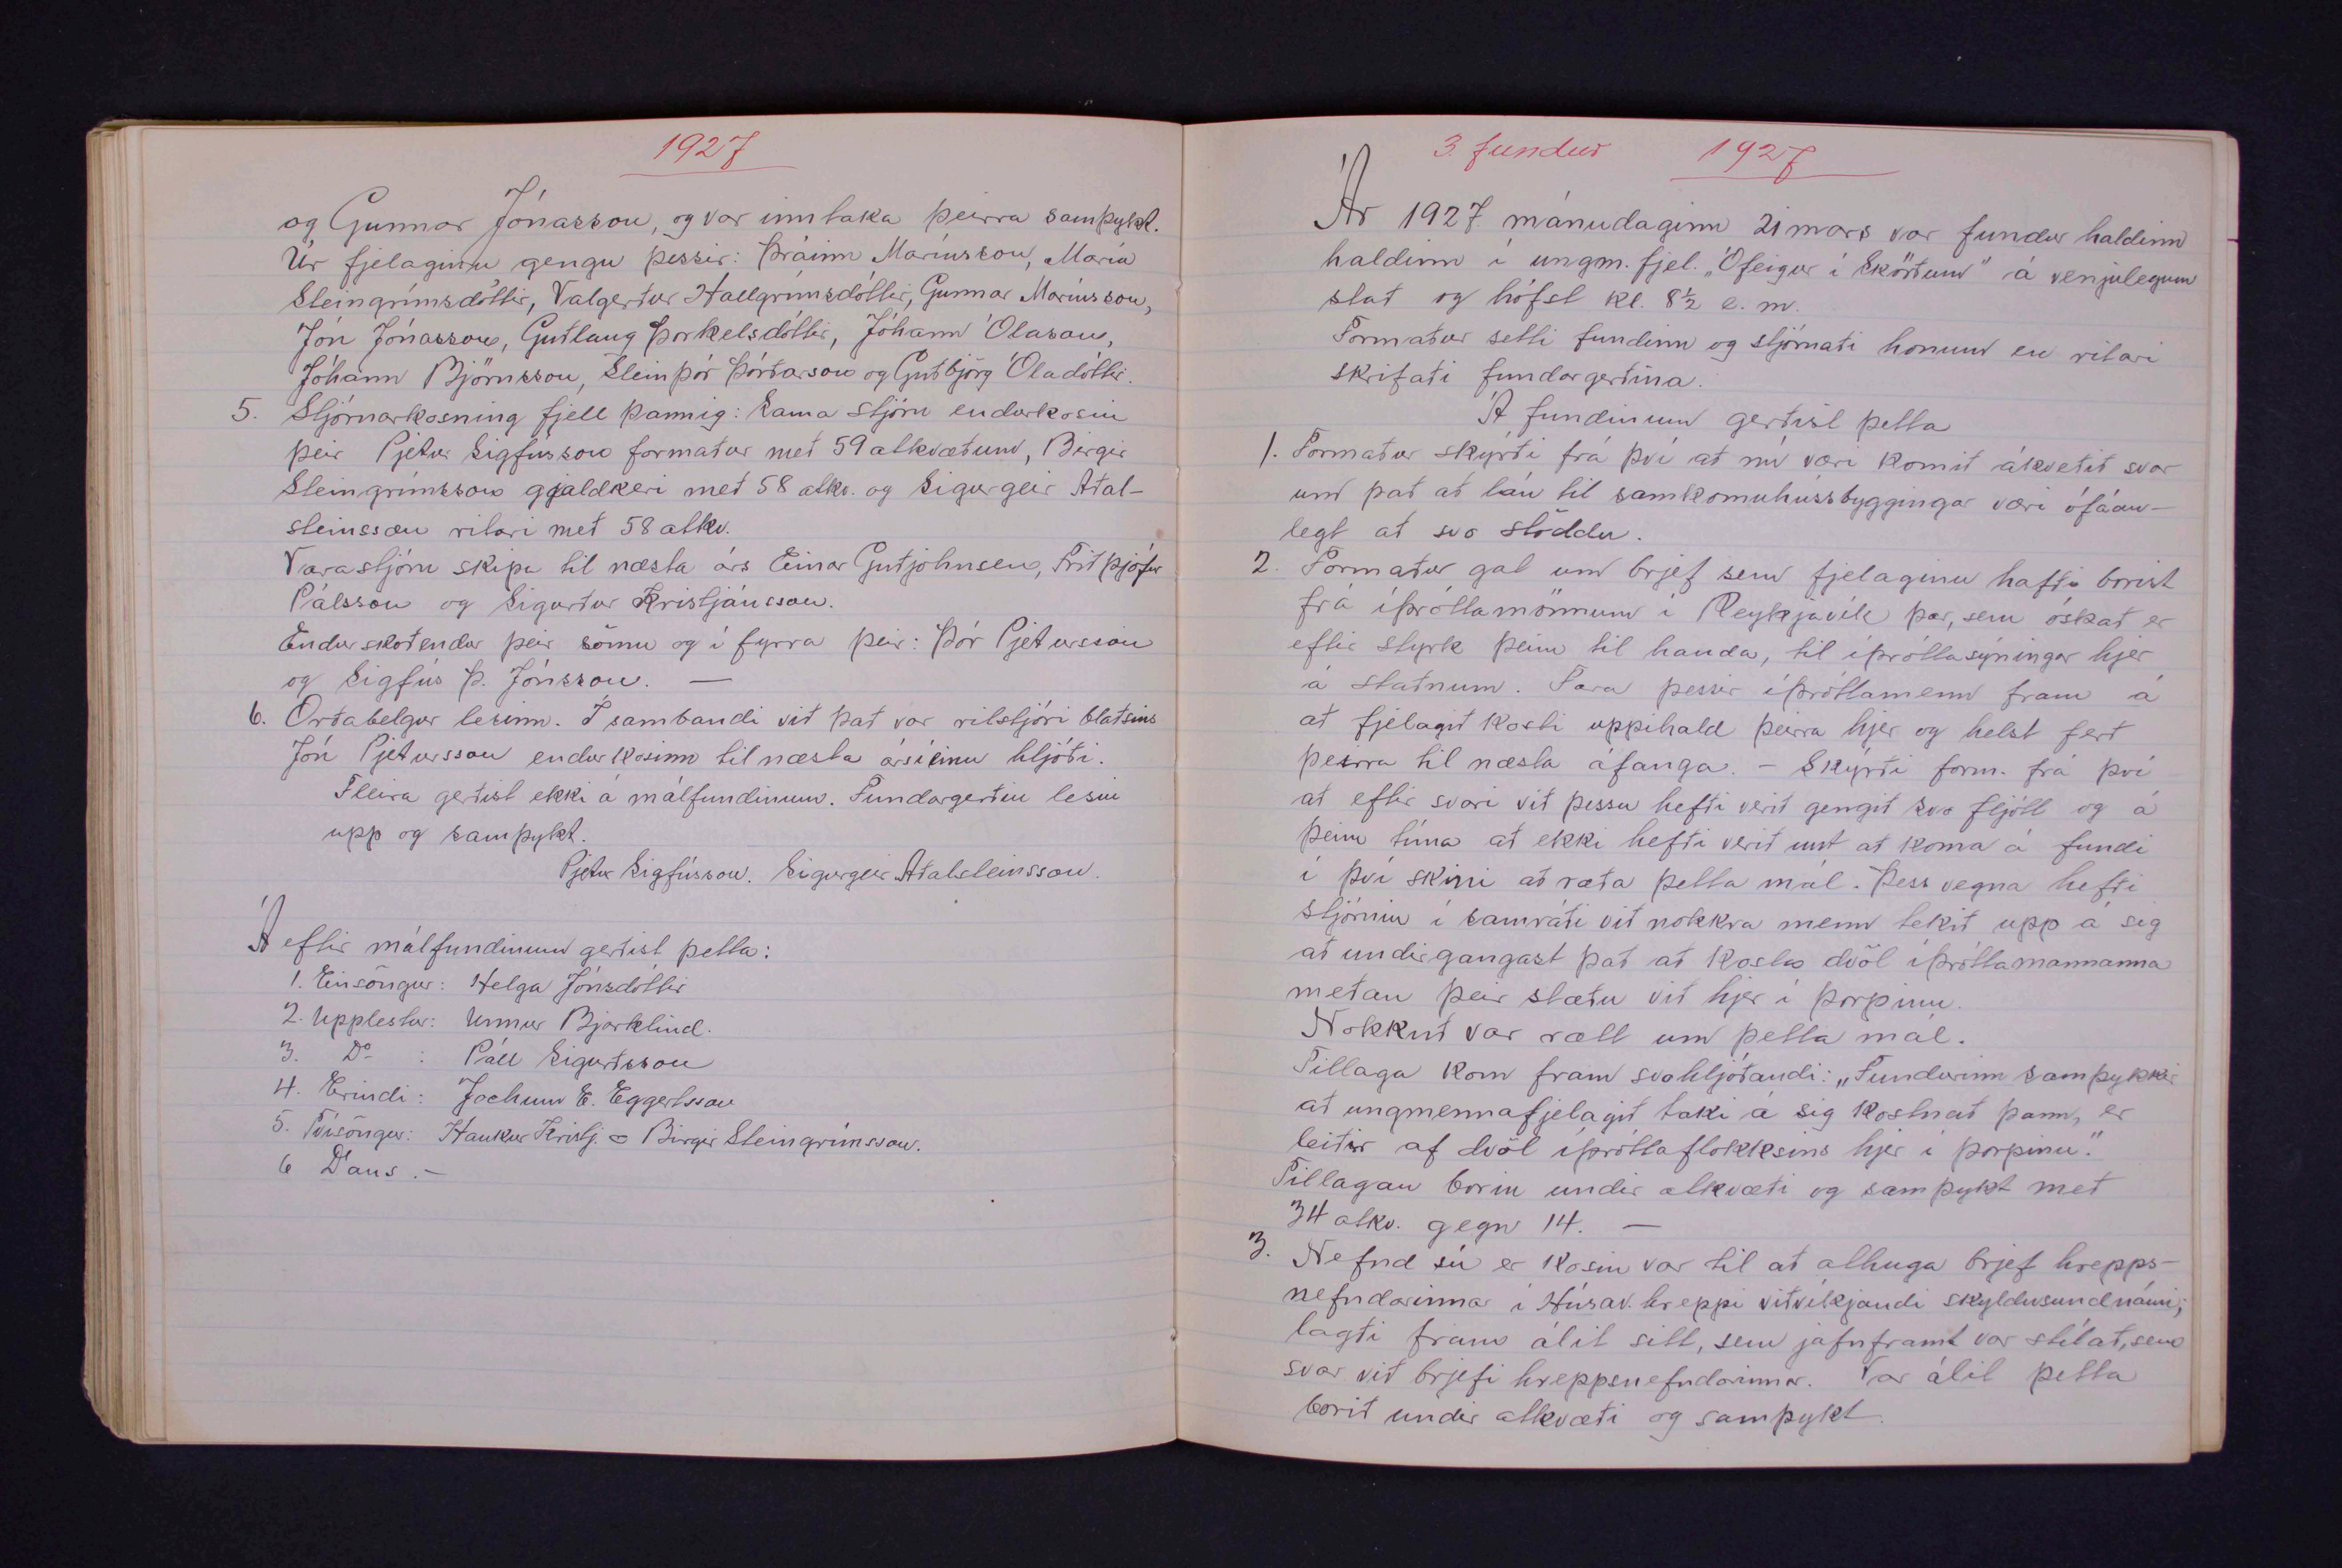 1927
og Gunnar Jónasson, og var inntaka þeirra samþykt.
Úr fjelaginu gengu þessir: Þráinn Maríusson, María
Steingrímsdóttir, Valgerður Hallgrímsdóttir, Gunnar Maríusson,
Jón Jónasson, Guðlaug Þorkelsdóttir, Jóhann Ólason,
Jóhann Björnsson, Steinþór Þórðarson og Guðbjörg Óladóttir.
5. Stjórnarkosning fjell þannig: Sama stjórn endurkosin
þeir Pjetur Sigfússon formaður með 59 atkvæðum, Birgir
Steingrímsson gjaldkeri með 58 atkv. og Sigurgeir Aðal-
steinsson ritari með 58 atkv.
Varastjórn skipa til næsta árs Einar Guðjohnsen, Friðþjófur
Pálsson og Sigurður Kristjánsson.
Endurskoðendur þeir sömu og í fyrra þeir: Þór Pjetursson
og Sigfús Þ. Jónsson. —
6. Orðabelgur lesinn. Í sambandi við það var ritstjóri blaðsins
Jón Pjetursson endurkosinn til næsta árs í einu hljóði.
Fleira gerðist ekki á málfundinum. Fundargerðin lesin
upp og samþykt.
Pjetur Sigfússon. Sigurgeir Aðalsteinsson.
Á eftir málfundinum gerðist þetta:
1. Einsöngur: Helga Jónsdóttir
2. Upplestur: Unnur Bjarklind.
3. Do : Páll Sigurðsson
4. Erindi: Jochum E. Eggertsson
5. Tvísöngur: Haukur Kristj. & Birgir Steingrímsson.
6 Dans. —
3. fundur 1927
Ár 1927 mánudaginn 21 mars var fundur haldinn
haldinn í ungm. fjel. „Ófeigur í Skörðum" á venjulegum
stað og hófst kl. 8½ e. m.
Formaður setti fundinn og stjórnaði honum en ritari
skrifaði fundargerðina.
Á fundinum gerðist þetta
1. Formaður skýrði frá því að nú væri komið ákveðið svar
um það að lán til samkomuhússbyggingar væri ófáan-
legt að svo stöddu.
2. Formaður gat um brjef sem fjelaginu hafði borist
frá íþróttamönnum í Reykjavík þar, sem óskað er
eftir styrk þeim til handa, til íþróttasýningar hjer
á staðnum. Fara þessir íþróttamenn fram á
að fjelagið kosti uppihald þeirra hjer og helst ferð
þeirra til næsta áfanga. – Skýrði form. frá því
að eftir svari við þessu hefði verið gengið svo fljótt og á
þeim tíma að ekki hefði verið unt að koma á fundi
í því skini að ræða þetta mál. Þess vegna hefði
stjórnin í samráði við nokkra menn tekið upp á sig
að undirgangast það að kosta dvöl íþróttamannanna
meðan þeir stæðu við hjer í þorpinu.
Nokkuð var rætt um þetta mál.
Tillaga kom fram svohljóðandi: „Fundurinn samþykkir
að ungmennafjelagið taki á sig kostnað þann, er
leiðir af dvöl íþróttaflokksins hjer í þorpinu."
Tillagan borin undir atkvæði og samþykt með
34 atkv. gegn 14. —
3. Nefnd sú er kosin var til að athuga brjef hrepps-
nefndarinnar í Húsav. hreppi viðvíkjandi skyldusundnámi,
lagði fram álit sitt, sem jafnframt var stílað, sem
svar við brjefi hreppsnefndarinnar. Var álit þetta
borið undir atkvæði og samþykt.